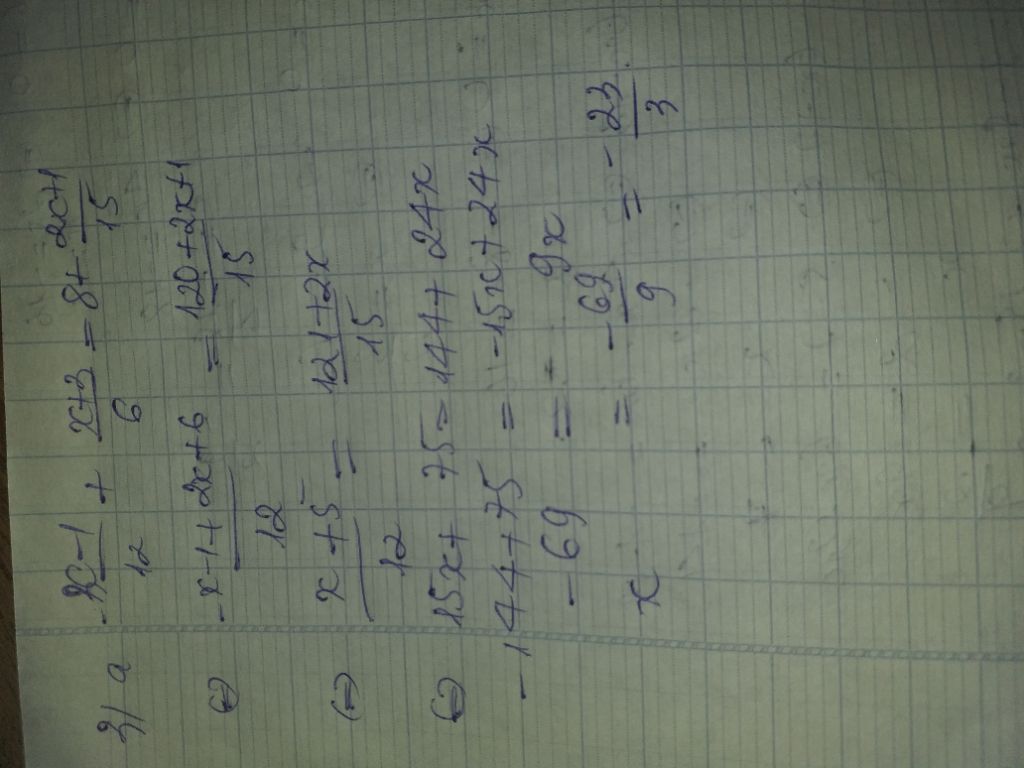 3) a -x-1/12 + x+3/6 = 8 + 2x+1/15
(=) -x-1+2x+6/12 = 120+2x+1/15
(=) x+5/12 = 121+2x/15
(=) 15x + 75 = 144 + 24x
-144+75 = -15x+24x
-69 = 9x
x = -69/9 = -23/3.